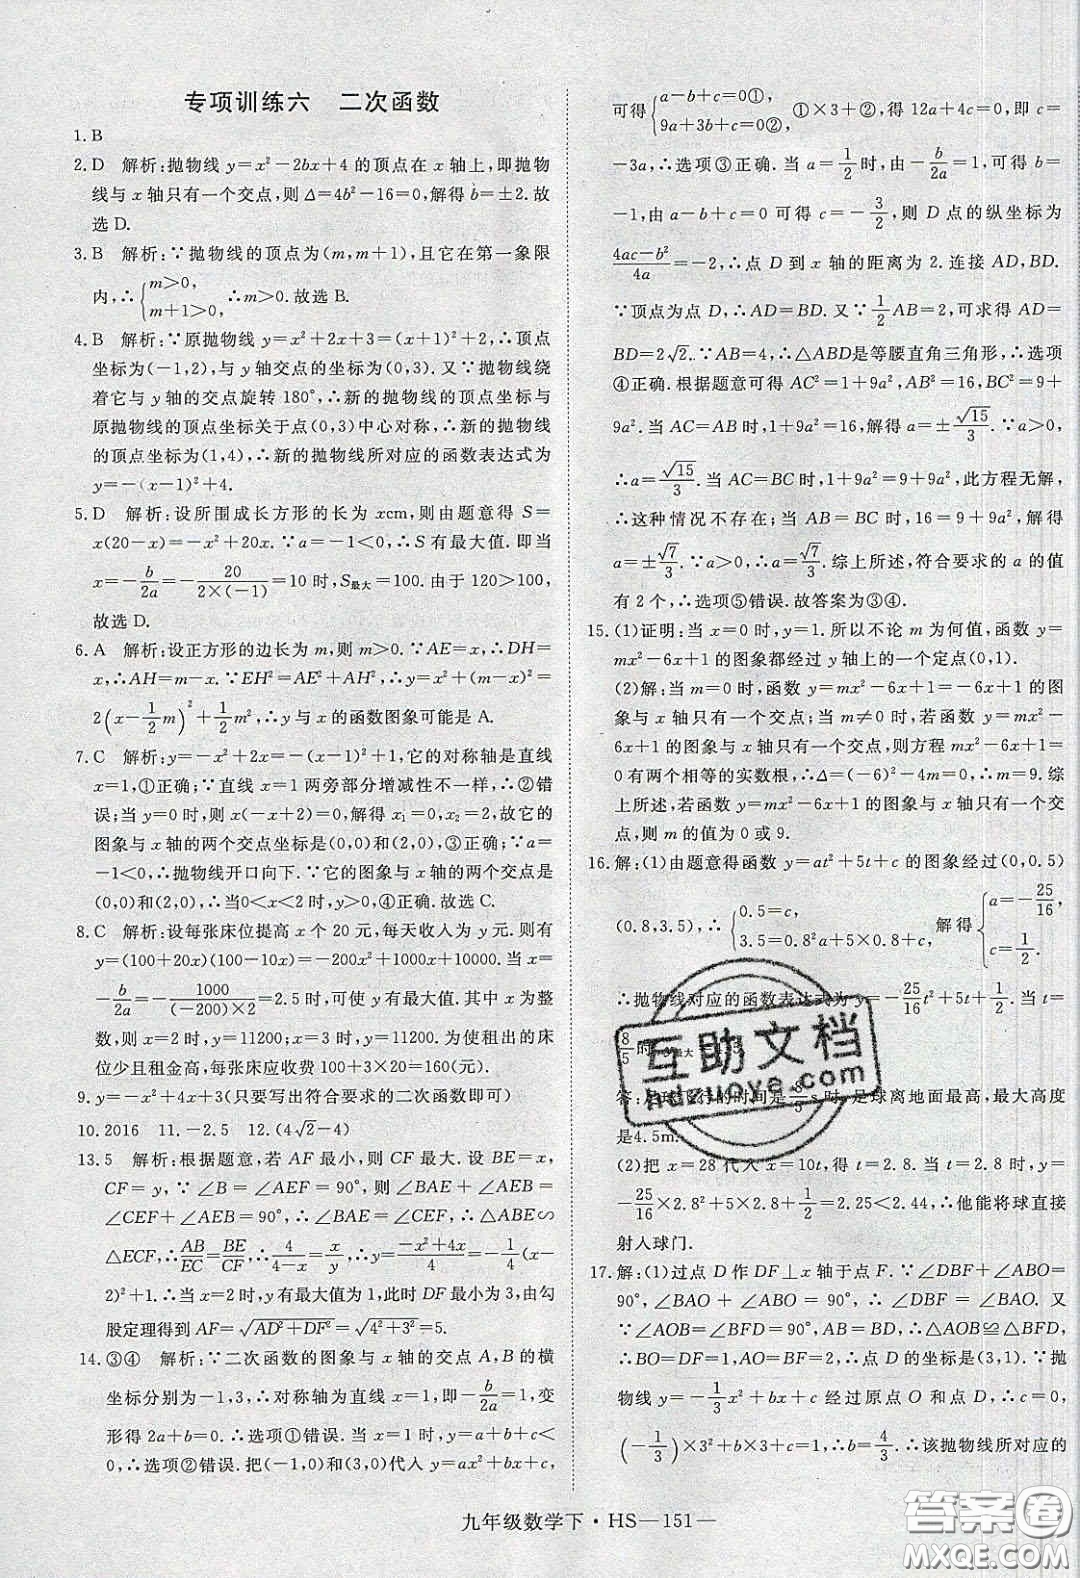 专项训练六 二次函数
1. B
2. D 解析:抛物线 y=x²-2bx+4 的顶点在 x 轴上,即抛物
线与 x 轴只有一个交点,则 Δ=4b²-16=0,解得 b=±2. 故
选 D.
3. B 解析:∵抛物线的顶点为(m,m+1),且它在第一象限
内,∴{m>0, m+1>0, ∴m>0. 故选 B.
4. B 解析:∵原抛物线 y=x²+2x+3=(x+1)²+2,∴顶点
坐标为(-1,2),与 y 轴交点的坐标为(0,3). 又∵抛物线绕
着它与 y 轴的交点旋转 180°,∴新的抛物线的顶点坐标与
原抛物线的顶点坐标关于点(0,3)中心对称,∴新的抛物线
的顶点坐标为(1,4),∴新的抛物线所对应的函数表达式为
y=-(x-1)²+4.
5. D 解析:设所围成长方形的长为 xcm,则由题意得 S=
x(20-x)=-x²+20x. ∵a=-1<0,∴S 有最大值. 即当
x=-b/2a=-20/(2×(-1))=10 时,S最大=100. 由于 120>100,
故选 D.
6. A 解析:设正方形的边长为 m,则 m>0. ∵AE=x,∴DH=
x,∴AH=m-x. ∵EH²=AE²+AH²,∴y=x²+(m-x)²=
2(x-1/2m)²+1/2m²,∴y 与 x 的函数图象可能是 A.
7. C 解析:y=-x²+2x=-(x-1)²+1,它的对称轴是直线
x=1,①正确;∵直线 x=1 两旁部分增减性不一样,∴②错
误;当 y=0 时,则 x(-x+2)=0,解得 x₁=0,x₂=2,故它的
图象与 x 轴的两个交点坐标是(0,0)和(2,0),③正确;∵a=
-1<0,∴抛物线开口向下. ∵它的图象与 x 轴的两个交点是
(0,0)和(2,0),∴当0<x<2 时,y>0,④正确. 故选 C.
8. C 解析:设每张床位提高 x 个 20 元,每天收入为 y 元. 则
有 y=(100+20x)(100-10x)=-200x²+1000x+10000. 当 x=
-b/2a=-1000/((-200)×2)=2.5 时,可使 y 有最大值. 其中 x 为整
数,则 x=2 时,y=11200;x=3 时,y=11200. 为使租出的床
位少且租金高,每张床应收费 100+3×20=160(元).
9. y=-x²+4x+3(只要写出符合要求的二次函数即可)
10. 2016 11. -2.5 12. (4√2-4)
13. 5 解析:根据题意,若 AF 最小,则 CF 最大. 设 BE=x,
CF=y,∵∠B=∠AEF=90°,则∠BAE+∠AEB=
∠CEF+∠AEB=90°,∴∠BAE=∠CEF,∴△ABE∽
△ECF,∴AB/EC=BE/CF,∴4/(4-x)=x/y,∴y=(-x²+4x)/4=-1/4(x-
2)²+1. ∴当 x=2 时,y 有最大值为 1,此时 DF 最小为 3,由勾
股定理得到 AF=√(AD²+DF²)=√(4²+3²)=5.
14. ③④ 解析:∵二次函数的图象与 x 轴的交点 A,B 的横
坐标分别为-1,3,∴对称轴为直线 x=1,即-b/2a=1,变
形得 2a+b=0,∴选项①错误. 当 x=1 时,y=a+b+c<
0,∴选项②错误. 把(-1,0)和(3,0)代入 y=ax²+bx+c,
可得{a-b+c=0①, 9a+3b+c=0②, ①×3+②,得 12a+4c=0,即 c=
-3a,∴选项③正确. 当 a=1/2 时,由-b/2a=1,可得 b=
-1,由 a-b+c=0 可得 c=-3/2,则 D 点的纵坐标为
(4ac-b²)/4a=-2,∴点 D 到 x 轴的距离为 2. 连接 AD,BD.
∵顶点为点 D,∴AD=BD. 又∵1/2AB=2,∴AD=
BD=2√2. ∵AB=4,∴△ABD是等腰直角三角形,∴选项
④正确. 根据题意可得 AC²=1+9a²,AB²=16,BC²=9+
9a². 当 AC=AB 时,1+9a²=16,解得 a=±√15/3. ∵a>0,
∴a=√15/3. 当 AC=BC 时,1+9a²=9+9a²,此方程无解,
∴这种情况不存在;当 AB=BC 时,16=9+9a²,解得
a=±√7/3. ∵a>0,∴a=√7/3. 综上所述,符合要求的 a 的值
有 2 个,∴选项⑤错误. 故答案为③④.
15. (1)证明:当 x=0 时,y=1. 所以不论 m 为何值,函数 y=
mx²-6x+1 的图象都经过 y 轴上的一个定点(0,1).
(2)解:当 m=0 时,函数 y=mx²-6x+1 的图
象与 x 轴只有一个交点;当 m≠0 时,若函数 y=mx²-
6x+1 的图象与 x 轴只有一个交点,则方程 mx²-6x+1=
0 有两个相等的实数根,∴Δ=(-6)²-4m=0,∴m=9. 综
上所述,若函数 y=mx²-6x+1 的图象与 x 轴只有一个交
点,则 m 的值为 0 或 9.
16. 解:(1)由题意得函数 y=at²+5t+c 的图象经过(0,0.5)
(0.8,3.5),∴{0.5=c, 3.5=0.8²a+5×0.8+c, 解得{a=-25/16, c=1/2.
∴抛物线对应的函数表达式为 y=-25/16t²+5t+1/2. 当 t=
8/5时,
答:足球飞行的时间是8/5s 时,足球离地面最高,最大高度
是4.5m.
(2)把 x=28 代入 x=10t,得 t=2.8. 当 t=2.8 时,y=
-25/16×2.8²+5×2.8+1/2=2.25<2.44,∴他能将球直接
射入球门.
17. 解:(1)过点 D 作 DF⊥x 轴于点 F. ∵∠DBF+∠ABO=
90°,∠BAO+∠ABO=90°,∴∠DBF=∠BAO. 又
∵∠AOB=∠BFD=90°,AB=BD,∴△AOB≌△BFD,
∴DF=BO=1,AO=BF=2,∴点 D 的坐标是(3,1). ∵抛
物线 y=-1/3x²+bx+c 经过原点 O 和点 D,∴c=0,
(-1/3)×3²+3b+c=1,∴b=4/3. ∴该抛物线所对应的
九年级数学下·HS—151—
互助文档
hdzuoye.com
答案圈
MXQE.COM